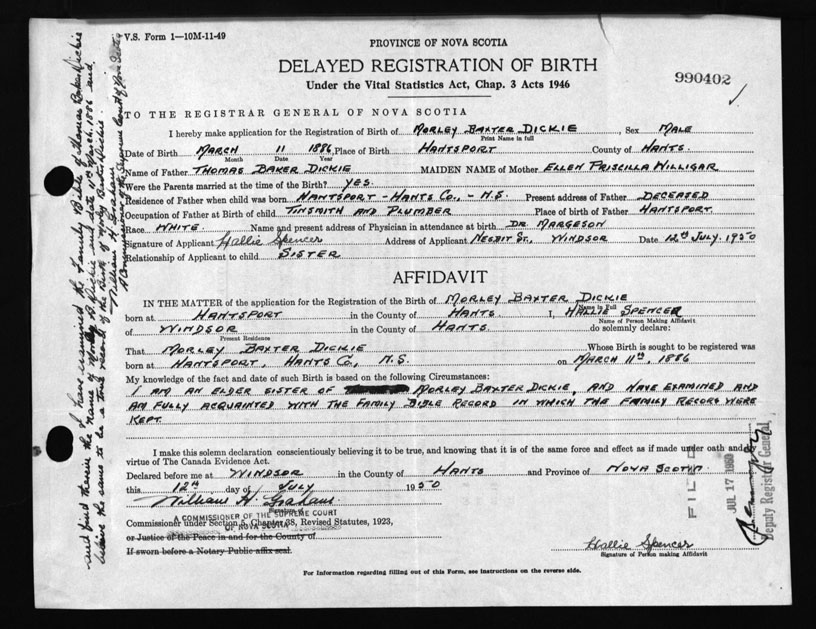 V.S. Form 1—10M-11-49
PROVINCE OF NOVA SCOTIA
DELAYED REGISTRATION OF BIRTH
Under the Vital Statistics Act, Chap. 3 Acts 1946
990402
TO THE REGISTRAR GENERAL OF NOVA SCOTIA
I hereby make application for the Registration of Birth of MORLEY BAXTER DICKIE, Sex MALE
Print Name in full
Date of Birth MARCH 11 1886, Place of Birth HANTSPORT County of HANTS.
Month Date Year
Name of Father THOMAS BAKER DICKIE MAIDEN NAME of Mother ELLEN PRISCILLA MILLIGAR
Were the Parents married at the time of the Birth? YES.
Residence of Father when child was born HANTSPORT - HANTS CO., - N.S. Present address of Father DECEASED
Occupation of Father at Birth of child TINSMITH AND PLUMBER Place of birth of Father HANTSPORT.
Race WHITE. Name and present address of Physician in attendance at birth DR. MARGESON
Signature of Applicant Hallie Spencer Address of Applicant NESBIT ST., WINDSOR Date 12th JULY. 1950
Relationship of Applicant to child SISTER
AFFIDAVIT
IN THE MATTER of the application for the Registration of the Birth of MORLEY BAXTER DICKIE
Name in Full
born at HANTSPORT in the County of HANTS I, HALLIE SPENCER
Name of Person Making Affidavit
of WINDSOR in the County of HANTS. do solemnly declare:
Present Residence
That MORLEY BAXTER DICKIE Whose Birth is sought to be registered was
born at HANTSPORT, HANTS CO., N.S. on MARCH 11th, 1886
My knowledge of the fact and date of such Birth is based on the following Circumstances:
I AM AN ELDER SISTER OF MORLEY BAXTER DICKIE, AND HAVE EXAMINED AND
AM FULLY ACQUAINTED WITH THE FAMILY BIBLE RECORD IN WHICH THE FAMILY RECORDS WERE
KEPT.
I make this solemn declaration conscientiously believing it to be true, and knowing that it is of the same force and effect as if made under oath and by
virtue of The Canada Evidence Act.
Declared before me at WINDSOR in the County of HANTS and Province of NOVA SCOTIA
this 12th day of JULY 1950
William H. Graham
Signature of
A COMMISSIONER OF THE SUPREME COURT
OF NOVA SCOTIA
Commissioner under Section 5, Chapter 38, Revised Statutes, 1923,
or Justice of the Peace in and for the County of
If sworn before a Notary Public affix seal.
Hallie Spencer
Signature of Person making Affidavit
For Information regarding filling out of this Form, see instructions on the reverse side.
FILED
JUL 17 1950
Deputy Registrar General
I have examined the Family Bible of Thomas Baker Dickie
and find therein the name of Morley B. Dickie and date 11th March, 1886 and
believe the same to be a true record of the Birth of Morley Baxter Dickie.
William H. Graham
A Commissioner of the Supreme Court of Nova Scotia